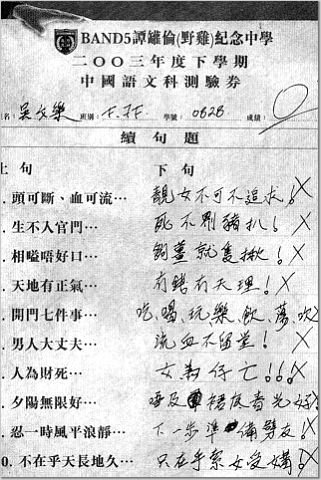 BAND5譚鏙倫(野雞)紀念中學
二〇〇三年度下學期
中國語文科測驗券
名: 吳文樂 班別: F.7F. 學號: 0626 成績:
續句題
上句 下句
. 頭可斷、血可流… 靚女不可不追求! X
. 生不人官門… 死不劏豬扒! X
. 相嗌唔好口… 就隻揪! X
. 天地有正氣… 有錢有天理! X
. 開門七件事… 吃、喝、玩、樂、飲、蕩、吹
. 男人大丈夫… 流血不留堂! X
. 人為財死… 女為仔亡!!! X
. 夕陽無限好… 唔及裙底春光好! X
. 忍一時風平浪靜… 下一步準備劈友! X
0. 不在乎天長地久… 只在乎索女受媾! X